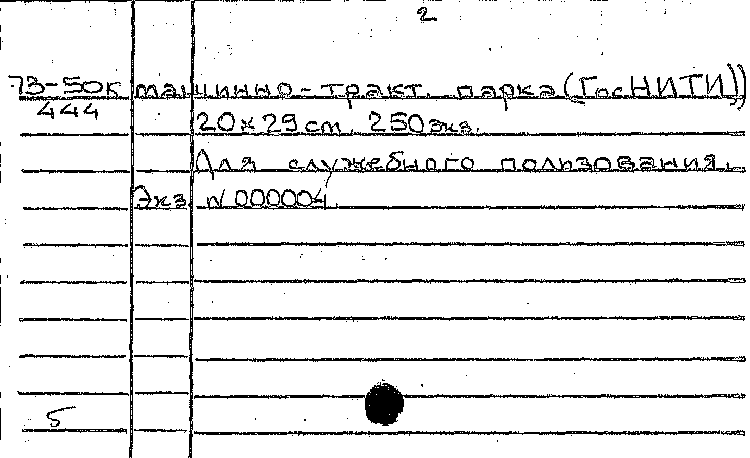 2
73-50к машинно-тракт. парка (ГосНИТИ))
444
20×29 cm. 250 экз.
Для служебного пользования.
Экз. N 000004.
5